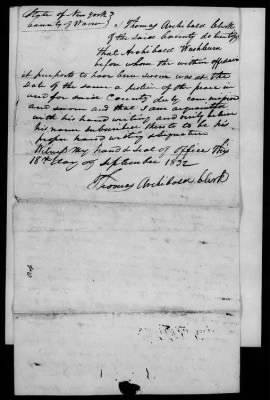 State of New York }
County of Warren } I Thomas Archibald Clerk
of the Said County do certify
that Archibald Washburn
before whom the within affidavit
it purports to have been sworn was at the
date of the same a justice of the peace in
and for said County duly commissioned
and sworn and that I am acquainted
with his hand writing and verily believe
his name subscribed thereto to be his
proper hand writing & signature
Witness my hand & Seal of office this
18th day of September 1832
Thomas Archibald Clerk